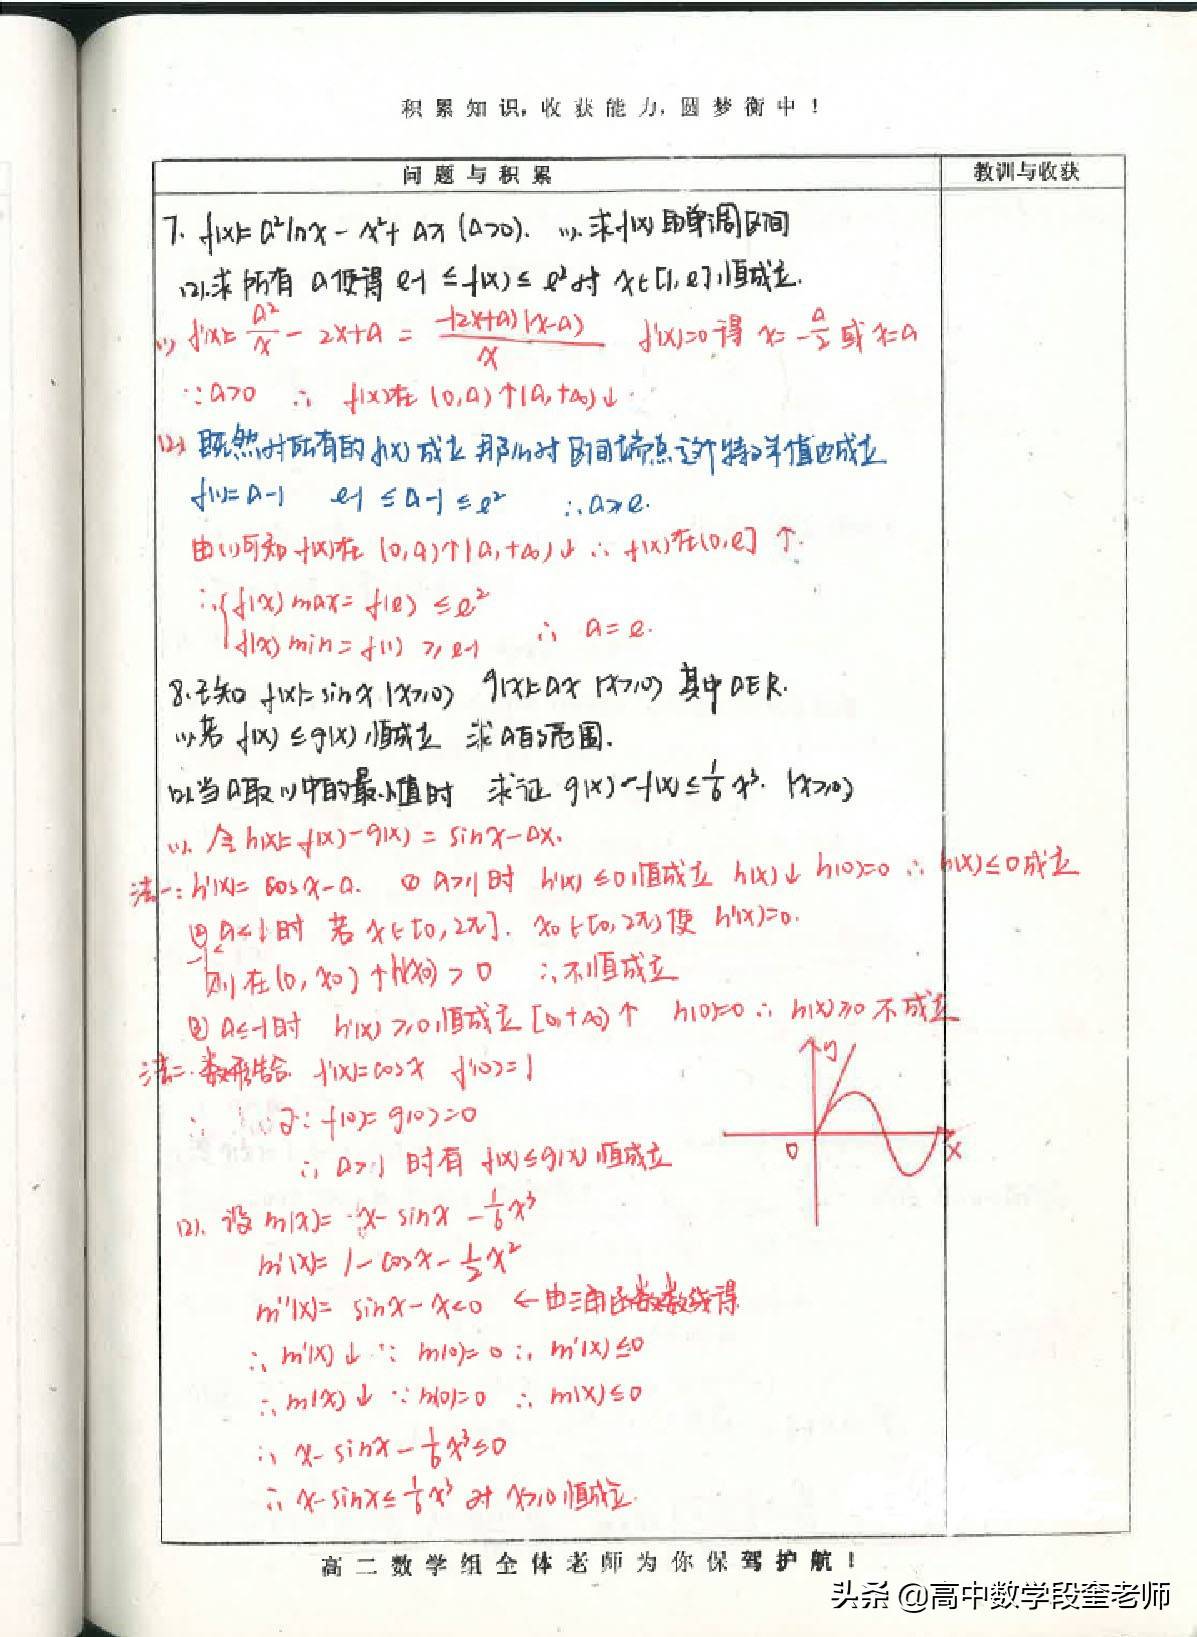 积累知识,收获能力,圆梦衡中!
问题与积累
教训与收获
7. f(x)=a²lnx-x²+ax (a>0). (1).求f(x)的单调区间
(2).求所有a使得e-1≤f(x)≤e²对x∈[1,e]恒成立.
(1) f'(x)=a²/x-2x+a=-(2x+a)(x-a)/x f'(x)=0得x=-a/2或x=a
∵a>0 ∴ f(x)在(0,a)↑(a,+∞)↓.
(2) 既然对所有的f(x)成立 那么对区间端点这个特殊值也成立
f(1)=a-1 e-1≤a-1≤e² ∴a≥e.
由(1)可知f(x)在(0,a)↑(a,+∞)↓ ∴ f(x)在(0,e]↑.
∴{f(x)max=f(e)≤e²
f(x)min=f(1)≥e-1 ∴ a=e.
8.已知 f(x)=sinx(x≥0) g(x)=ax(x≥0) 其中a∈R.
(1)若f(x)≤g(x)恒成立 求a的范围.
(2).当a取(1)中的最小值时 求证 g(x)-f(x)≤1/6x³. (x≥0)
(1). 令h(x)=f(x)-g(x)=sinx-ax.
法一:h'(x)=cosx-a. ①a≥1时 h'(x)≤0恒成立 h(x)↓ h(0)=0 ∴h(x)≤0成立
②a<1时 若x∈[0,2π]. x₀∈[0,2π)使h'(x)=0.
-1<
则在(0,x₀)↑h(x₀)>0 ∴不恒成立
③a≤-1时 h'(x)≥0恒成立[0,+∞)↑ h(0)=0∴h(x)≥0不成立
法二.数形结合 f'(x)=cosx f'(0)=1
∴ ∴ 又∵f(0)=g(0)=0
∴a≥1时有f(x)≤g(x)恒成立
y
0
x
(2). 设m(x)=x-sinx-1/6x³
m'(x)=1-cosx-1/2x²
m''(x)=sinx-x<0 ←由三角函数线得
∴m'(x)↓ ∵ m(0)=0∴m'(x)≤0
∴m(x)↓ ∵m(0)=0 ∴m(x)≤0
∴x-sinx-1/6x³≤0
∴x-sinx≤1/6x³对x≥0恒成立.
高二数学组全体老师为你保驾护航!
头条 @高中数学段奎老师